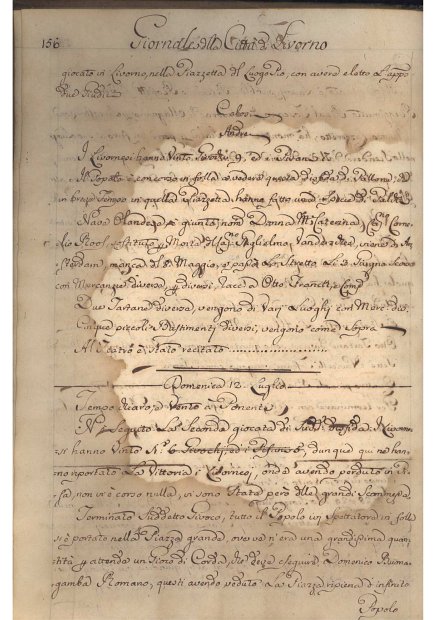 156 Giornale della Città di Livorno
giocato in Livorno, nella Piazzetta del Luogo Pio, con avere eletto
due Giudici
Andre
I Livornesi hanno vinto 9, ed i Pisani
Il Popolo è concorso in folla a vedere questa disfida di Pallone, ed
in breve Tempo in quella Piazzetta hanno fatto
Nave Olandese, è giunta nom. Donna M. Caterina, Cap.
Roos, sostituto in Morte del Guglielmo Vanderzee, viene d' Am
sterdam, manca del 8 Maggio, e passò Lo Stretto Li 3 Giugno
con Mercanzie diverse, e diversi race. a Otto Franck, e Comp.
Due Tartane diverse, vengono di Varj Luoghi con Merc. div.
Cinque piccoli Bastimenti diversi, vengono come Sopra
Al Teatro è stato recitato ..................
Domenica 12. Luglio
Tempo chiaro, e Vento a Ponente
N' è seguito La Seconda giocata di Sudd. disfida. I Livor
nesi hanno vinto N. 6 Giuochi, ed i Pisani 5, dunque qui ne han
no riportato La Vittoria i Livornesi, onde avendo perduto in Pi
sa, non vi è corso nulla, vi sono state però delle grandi Scommesse
Terminato Suddetto Giuoco, tutto il Popolo in Spettatore in folla
si è portato nella Piazza grande, ove ve n'era una grandissima quan
tità attendo un Gioco di Corda, che dovea eseguire Domenico Buona
gamba Romano, questi avendo veduto La Piazza ripiena d' infinito
Popolo